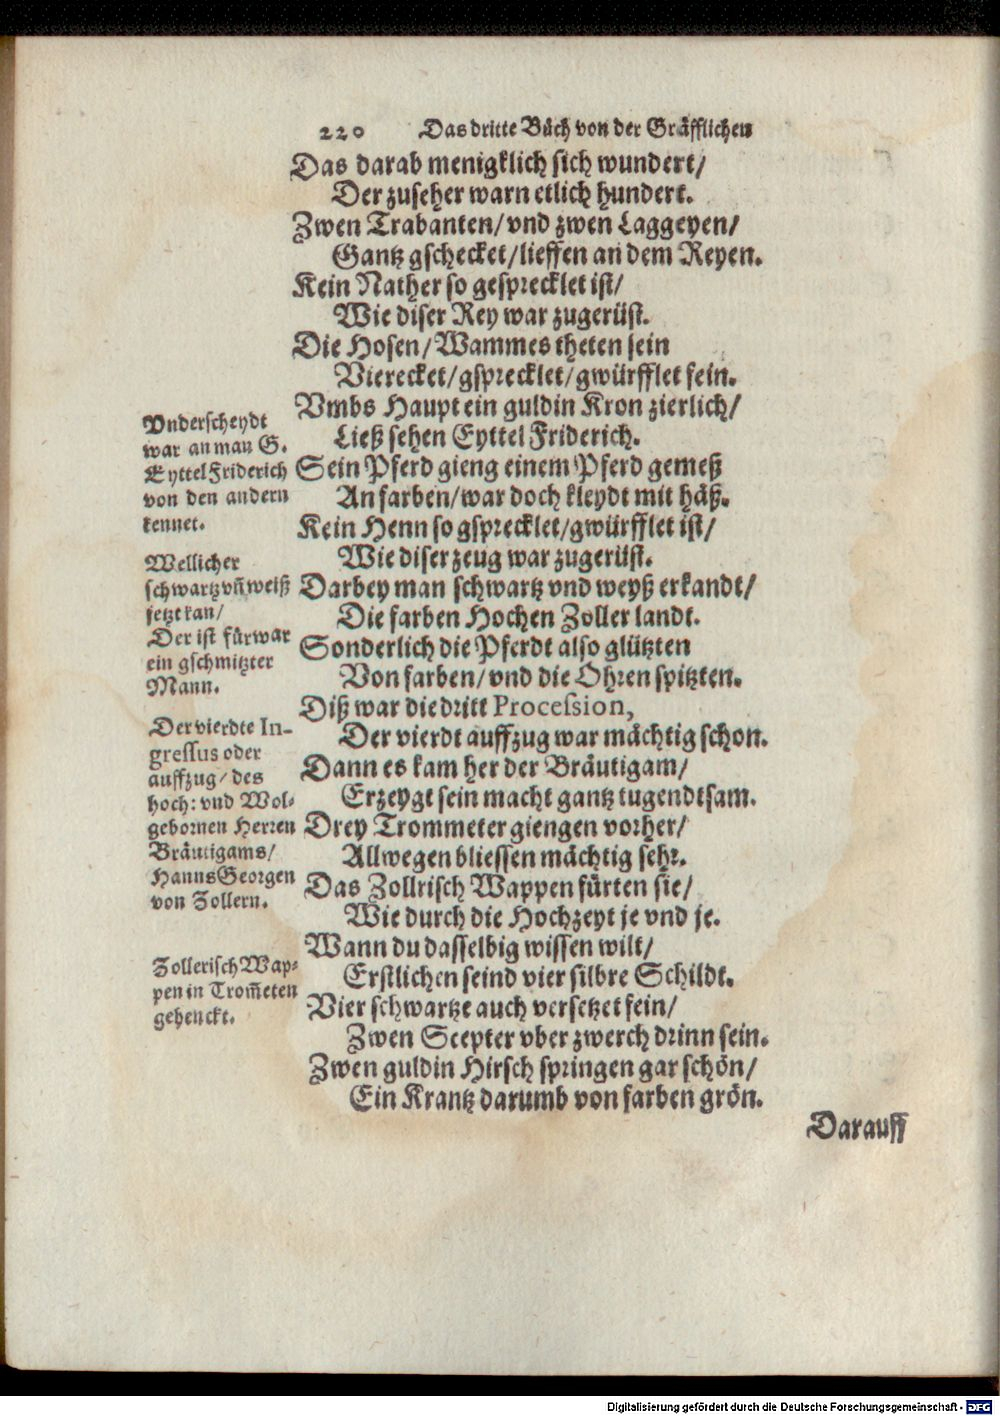 220 Das dritte Bůch von der Gräfflichen
Das darab menigklich sich wundert/
Der zuseher warn etlich hundert.
Zwen Trabanten/ vnd zwen Laggeyen/
Gantz gschecket/ lieffen an dem Reyen.
Kein Nather so gesprecklet ist/
Wie diser Rey war zugerüst.
Die Hosen/ Wammes theten sein
Vierecket/ gsprecklet/ gwürfflet fein.
Vmbs Haupt ein guldin Kron zierlich/
Ließ sehen Eyttel Friderich.
Sein Pferd gieng einem Pferd gemeß
An farben/ war doch kleydt mit häß.
Kein Henn so gsprecklet/ gwürfflet ist/
Wie diser zeug war zugerüst.
Darbey man schwartz vnd weyß erkandt/
Die farben Hochen Zoller landt.
Sonderlich die Pferdt also glützten
Von farben/ vnd die Ohren spitzten.
Diß war die dritt Procession,
Der vierdt auffzug war mächtig schon.
Dann es kam her der Bräutigam/
Erzeygt sein macht gantz tugendtsam.
Drey Trommeter giengen vorher/
Allwegen bliessen mächtig sehr.
Das Zollrisch Wappen fürten sie/
Wie durch die Hochzeyt je vnd je.
Wann du dasselbig wissen wilt/
Erstlichen seind vier silbre Schildt.
Vier schwartze auch versetzet fein/
Zwen Scepter vber zwerch drinn sein.
Zwen guldin Hirsch springen gar schön/
Ein Krantz darumb von farben grön.
Darauff
Vnderscheydt
war an man G.
Eyttel Friderich
von den andern
kennet.
Wellicher
schwartz vñ weiß
jetzt kan/
Der ist fürwar
ein gschmitzter
Mann.
Der vierdte In-
gressus oder
auffzug/ des
hoch: vnd Wol-
gebornen Herren
Bräutigams/
Hanns Georgen
von Zollern.
Zollerisch Wap-
pen in Trom̃eten
gehenckt.
Digitalisierung gefördert durch die Deutsche Forschungsgemeinschaft - DFG